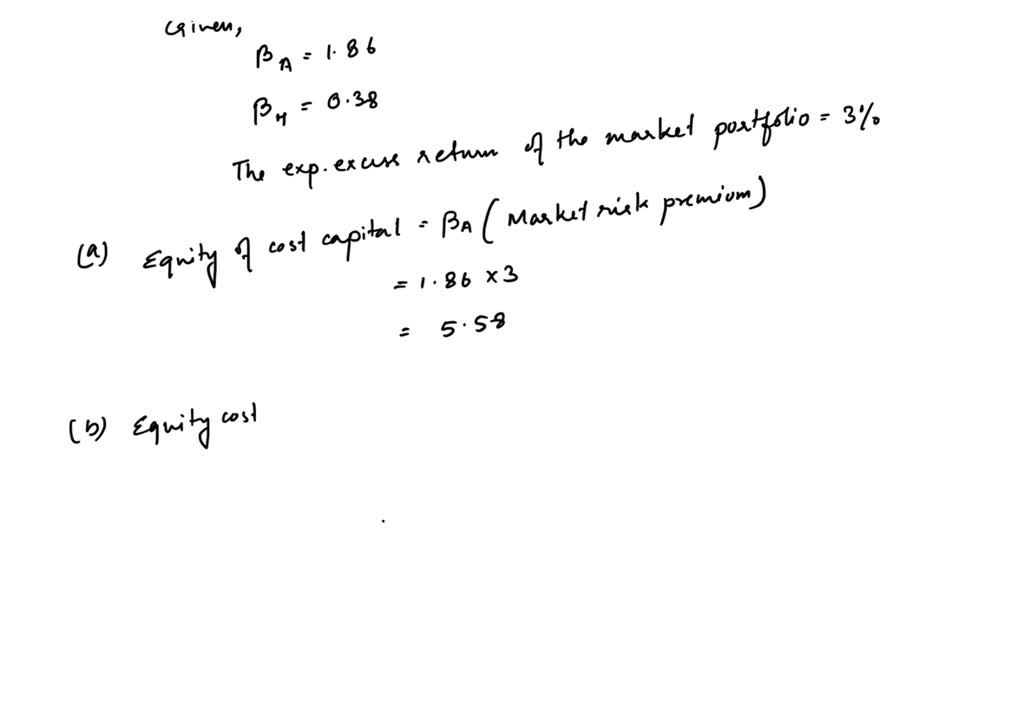 Given,
βA = 1.86
βH = 0.38
The exp. excess return of the market portfolio = 3%
(a) Equity of cost capital = βA (Market risk premium)
= 1.86 × 3
= 5.58
(b) Equity cost